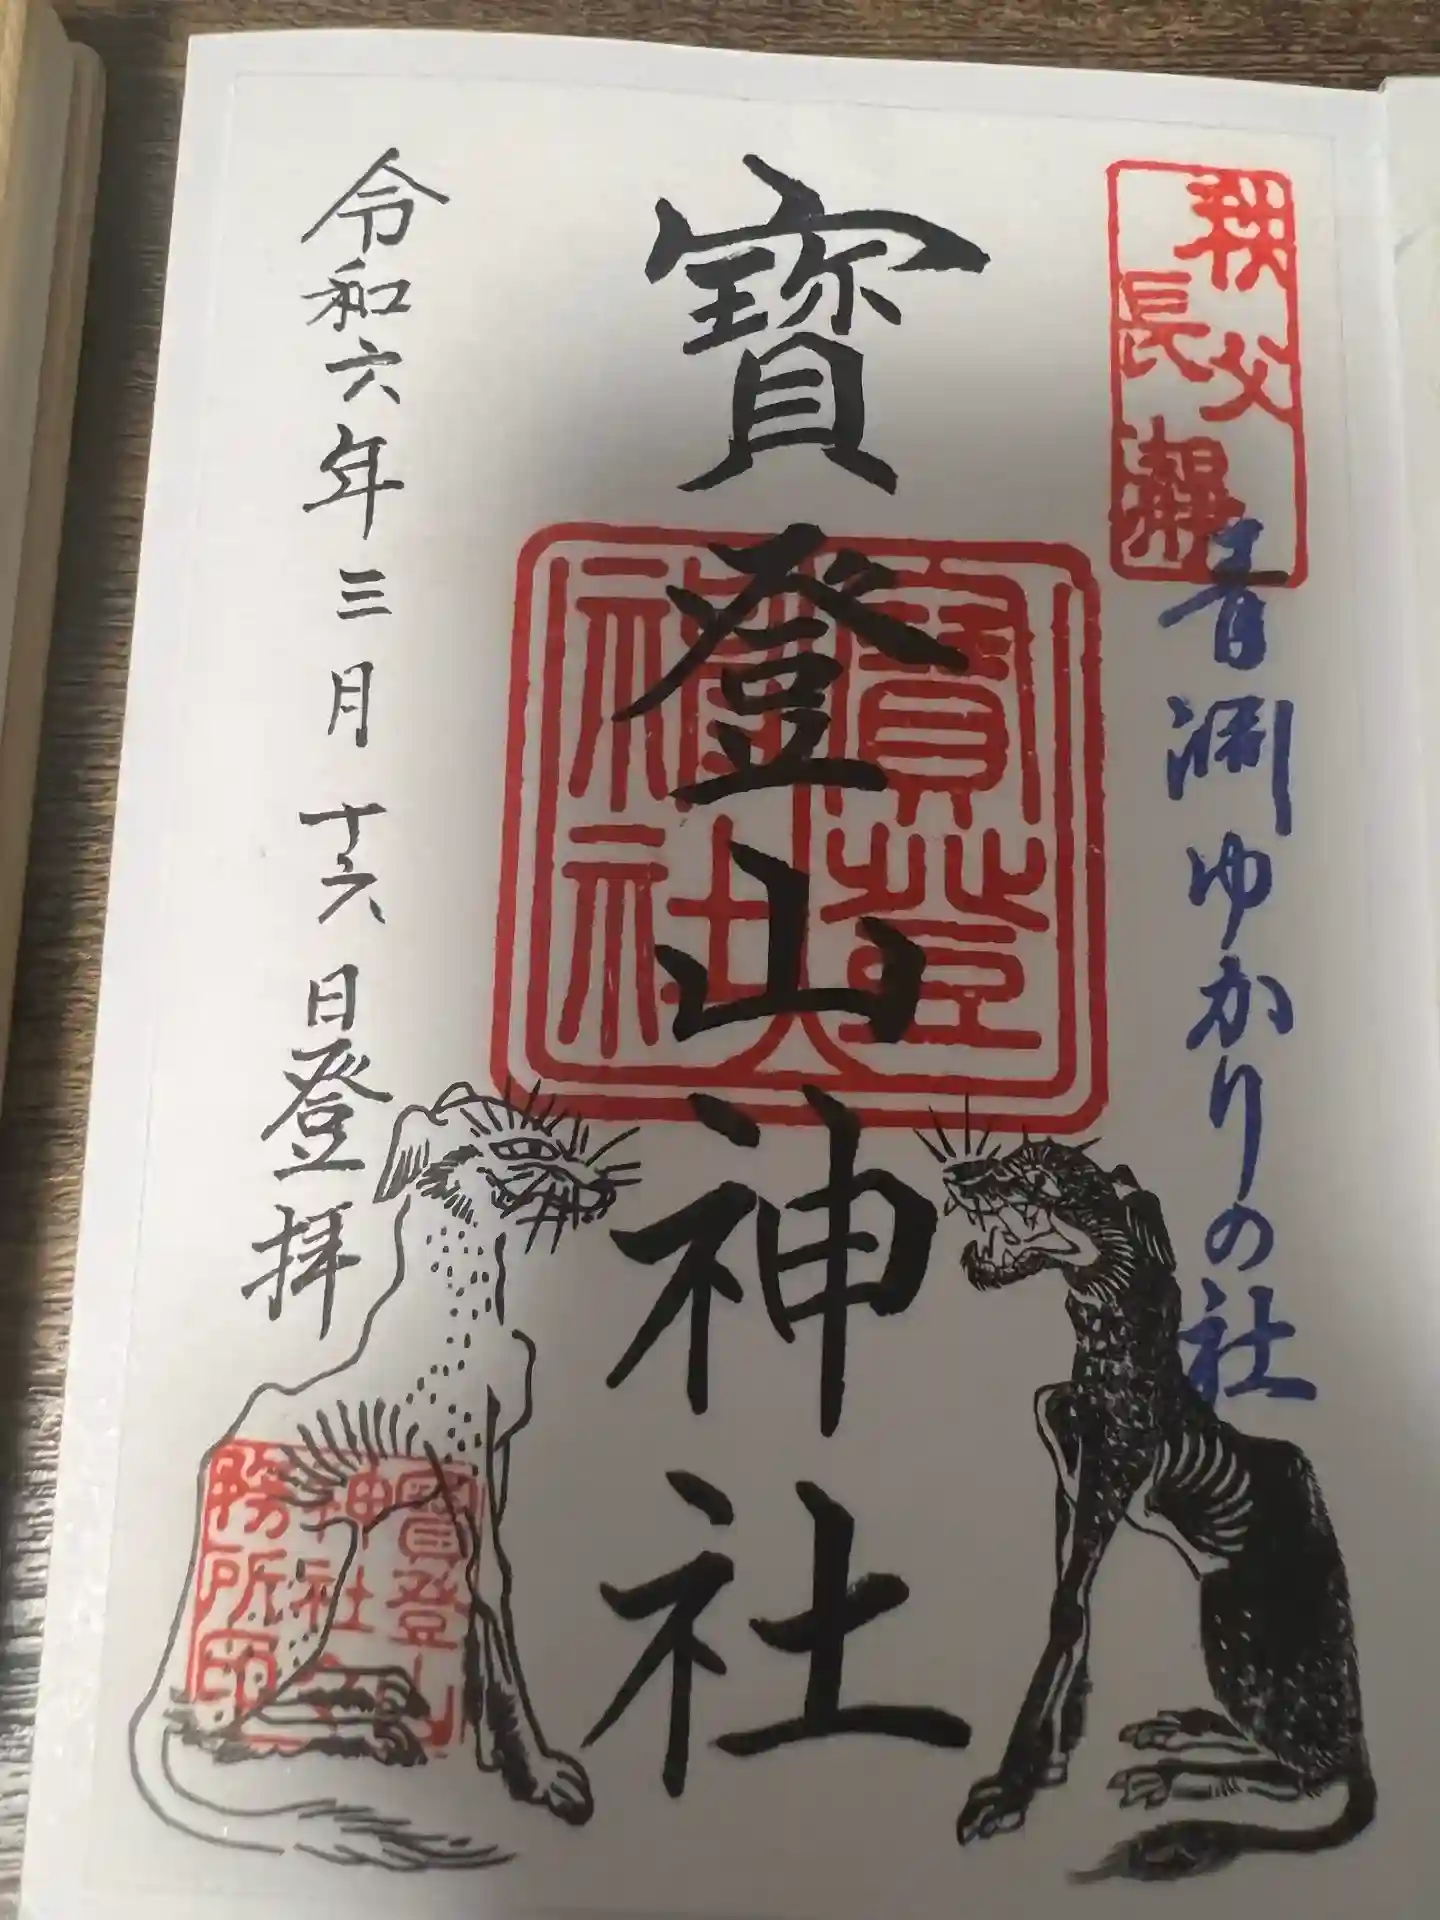 秩父
長瀞
青淵ゆかりの社
寳登山神社
寳登
神社
令和六年三月十六日登拝
寳登山
神社社
務所印